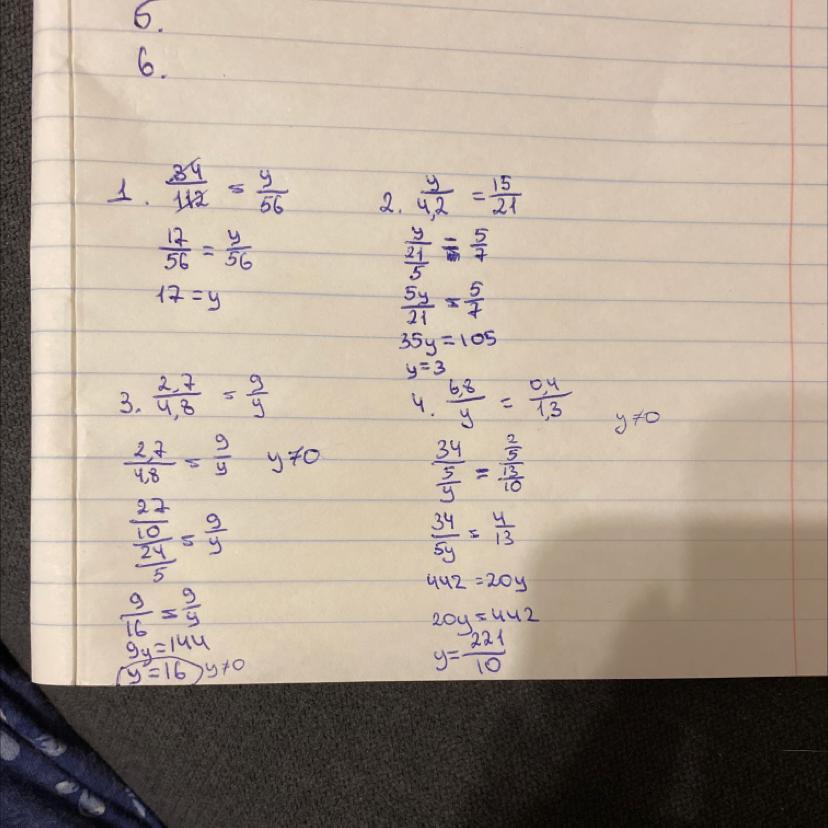 5.
6.
1. 34/112 = y/56
17/56 = y/56
17 = y
2. y/4,2 = 15/21
y/(21/5) = 5/7
5y/21 = 5/7
35y = 105
y = 3
3. 2,7/4,8 = 9/y
2,7/4,8 = 9/y y≠0
(27/10)/(24/5) = 9/y
9/16 = 9/y
9y = 144
y = 16 y≠0
4. 6,8/y = 0,4/1,3 y≠0
34/5/y = (2/5)/(13/10)
34/5y = 4/13
442 = 20y
20y = 442
y = 221/10